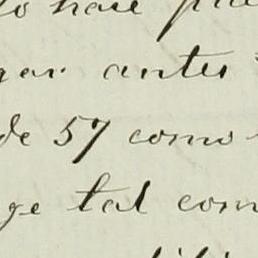 hace
gar antes
de 57 como
ge tal com